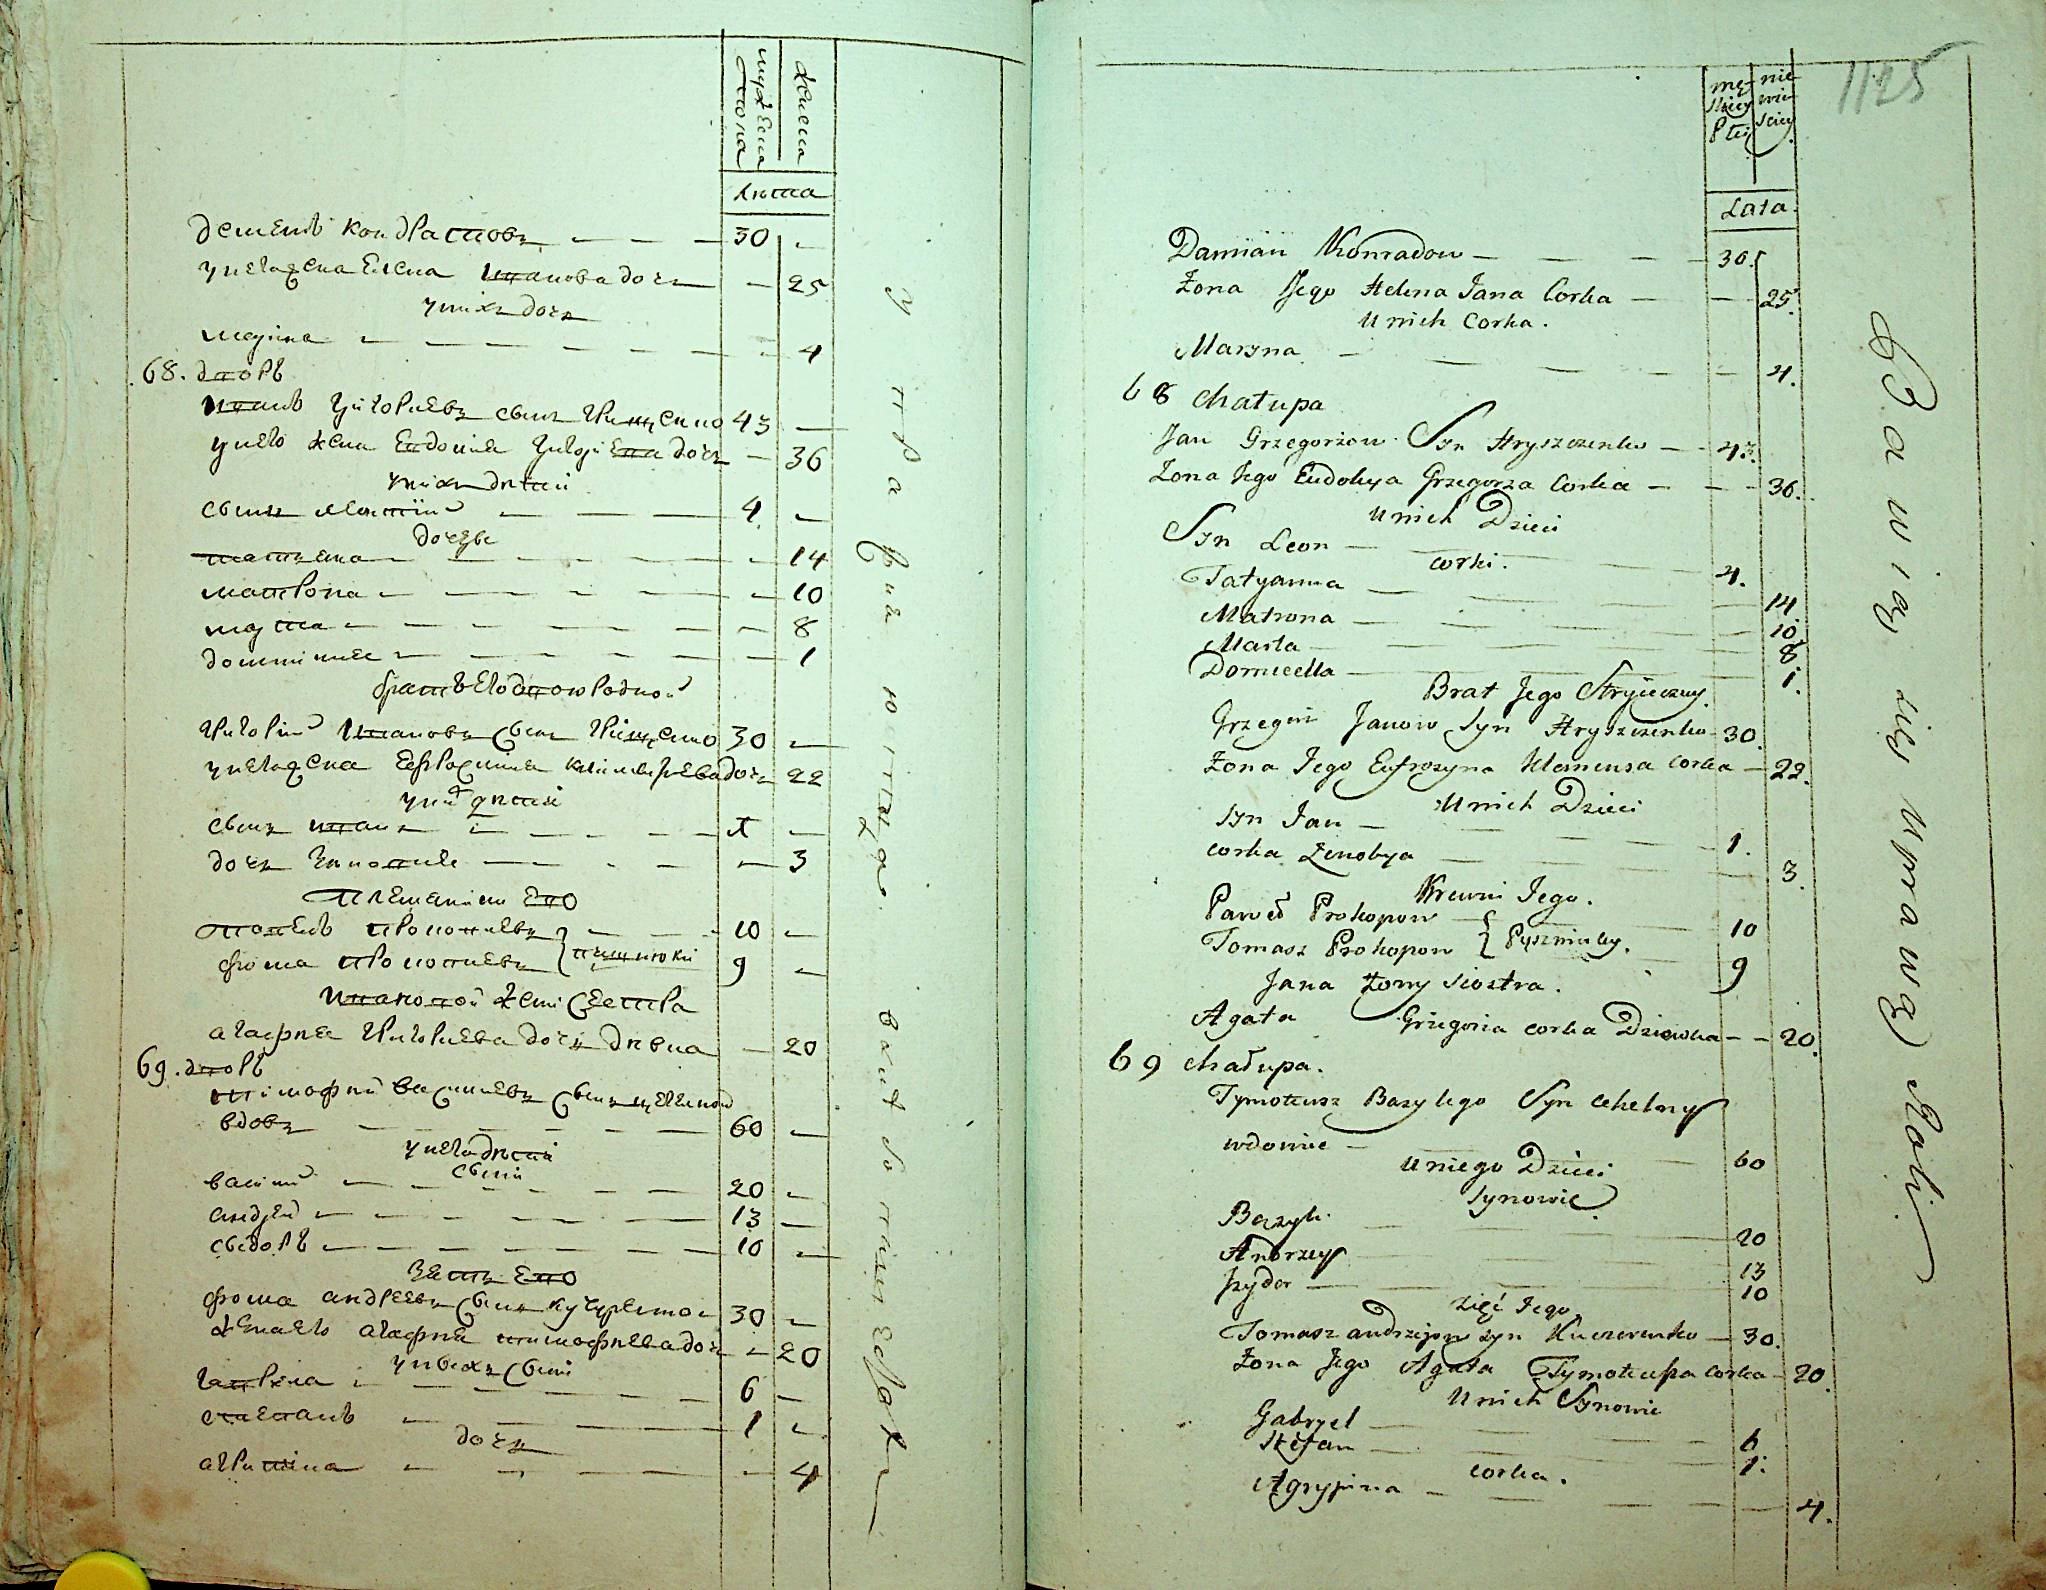 мужеска пола
женска
лѣта
Деменъ Кондратовъ — — — 30 —
у него жена Елена Иванова дочь — 25
у них дочь
Марина — — — — — 4
68. дворъ
Иванъ Григориевъ сынъ Грищенко 43 —
у него жена Евдокия Григориева дочь — 36
у них дети
сынъ Леонтий — — 4 —
дочери
Татьяна — — — — 14
Матрона — — — — 10
Марта — — — — 8
Домникия — — — — 1
братъ его двоюродной
Григорий Ивановъ сынъ Грищенко 30 —
у него жена Ефросиния Климентьева дочь 22
у них дети
сынъ Иванъ — — — 1 —
дочь Зиновия — — — 3
племянники его
Прокопиевъ — — 10 —
Фома Прокопиевъ 9 —
Ивановой жены сестра
Агафия Григориева дочь девка — 20
69. дворъ
Тимофей Василиевъ сынъ
вдовъ — — — 60 —
у него дети
сыни
Василий — — — 20 —
Андрей — — — 13 —
Сидоръ — — — 10 —
зять его
Фома Андреевъ сынъ 30 —
жена его Агафия Тимофиева дочь — 20
у них сыни
Гаврила — — — 6 —
Степанъ — — — 1 —
дочь
Агрипина — — — — 4
męzkiey płci
niewieściey
Lata.
Damian Konradow — — — 30.
Żona Jego Helena Jana Corka — — 25.
U nich Corka.
Maryna — — — — 4.
68 Chałupa
Jan Grzegorzow Syn Hryszczenko — 43.
Żona Jego Eudokya Grzegorza Corka — — 36.
U nich Dzieci
Syn Leon — — 4.
corki.
Tatyanna — — — 14.
Matrona — — — 10
Marta — — — 8
Domicella — — — 1.
Brat Jego Stryieczny.
Grzegorz Janow Syn Hryszczenko 30.
Żona Jego Eufrozyna Klemensa corka — 22.
U nich Dzieci
Syn Jan — — — 1.
corka Zenobya — — — 3.
Krewni Jego.
Paweł Prokopow — 10
Tomasz Prokopow 9
Jana Żony siostra.
Agata Grzegorza corka Dziewka — — 20.
69 Chałupa.
Tymoteusz Bazylego Syn
wdowiec — — 60
U niego Dzieci
Synowie
Bazyli — — — 20
Andrzey — — — 13
Izydor — — — 10
zięć Jego
Tomasz Andrzejow syn Kuczerenko — 30.
Żona Jego Agata Tymoteusza corka — 20.
U nich Synowie
Gabryel — — — 6
Stefan — — — 1.
corka.
Agrypina — — — — 4.
Bawiąc się Uprawą Roli
1125